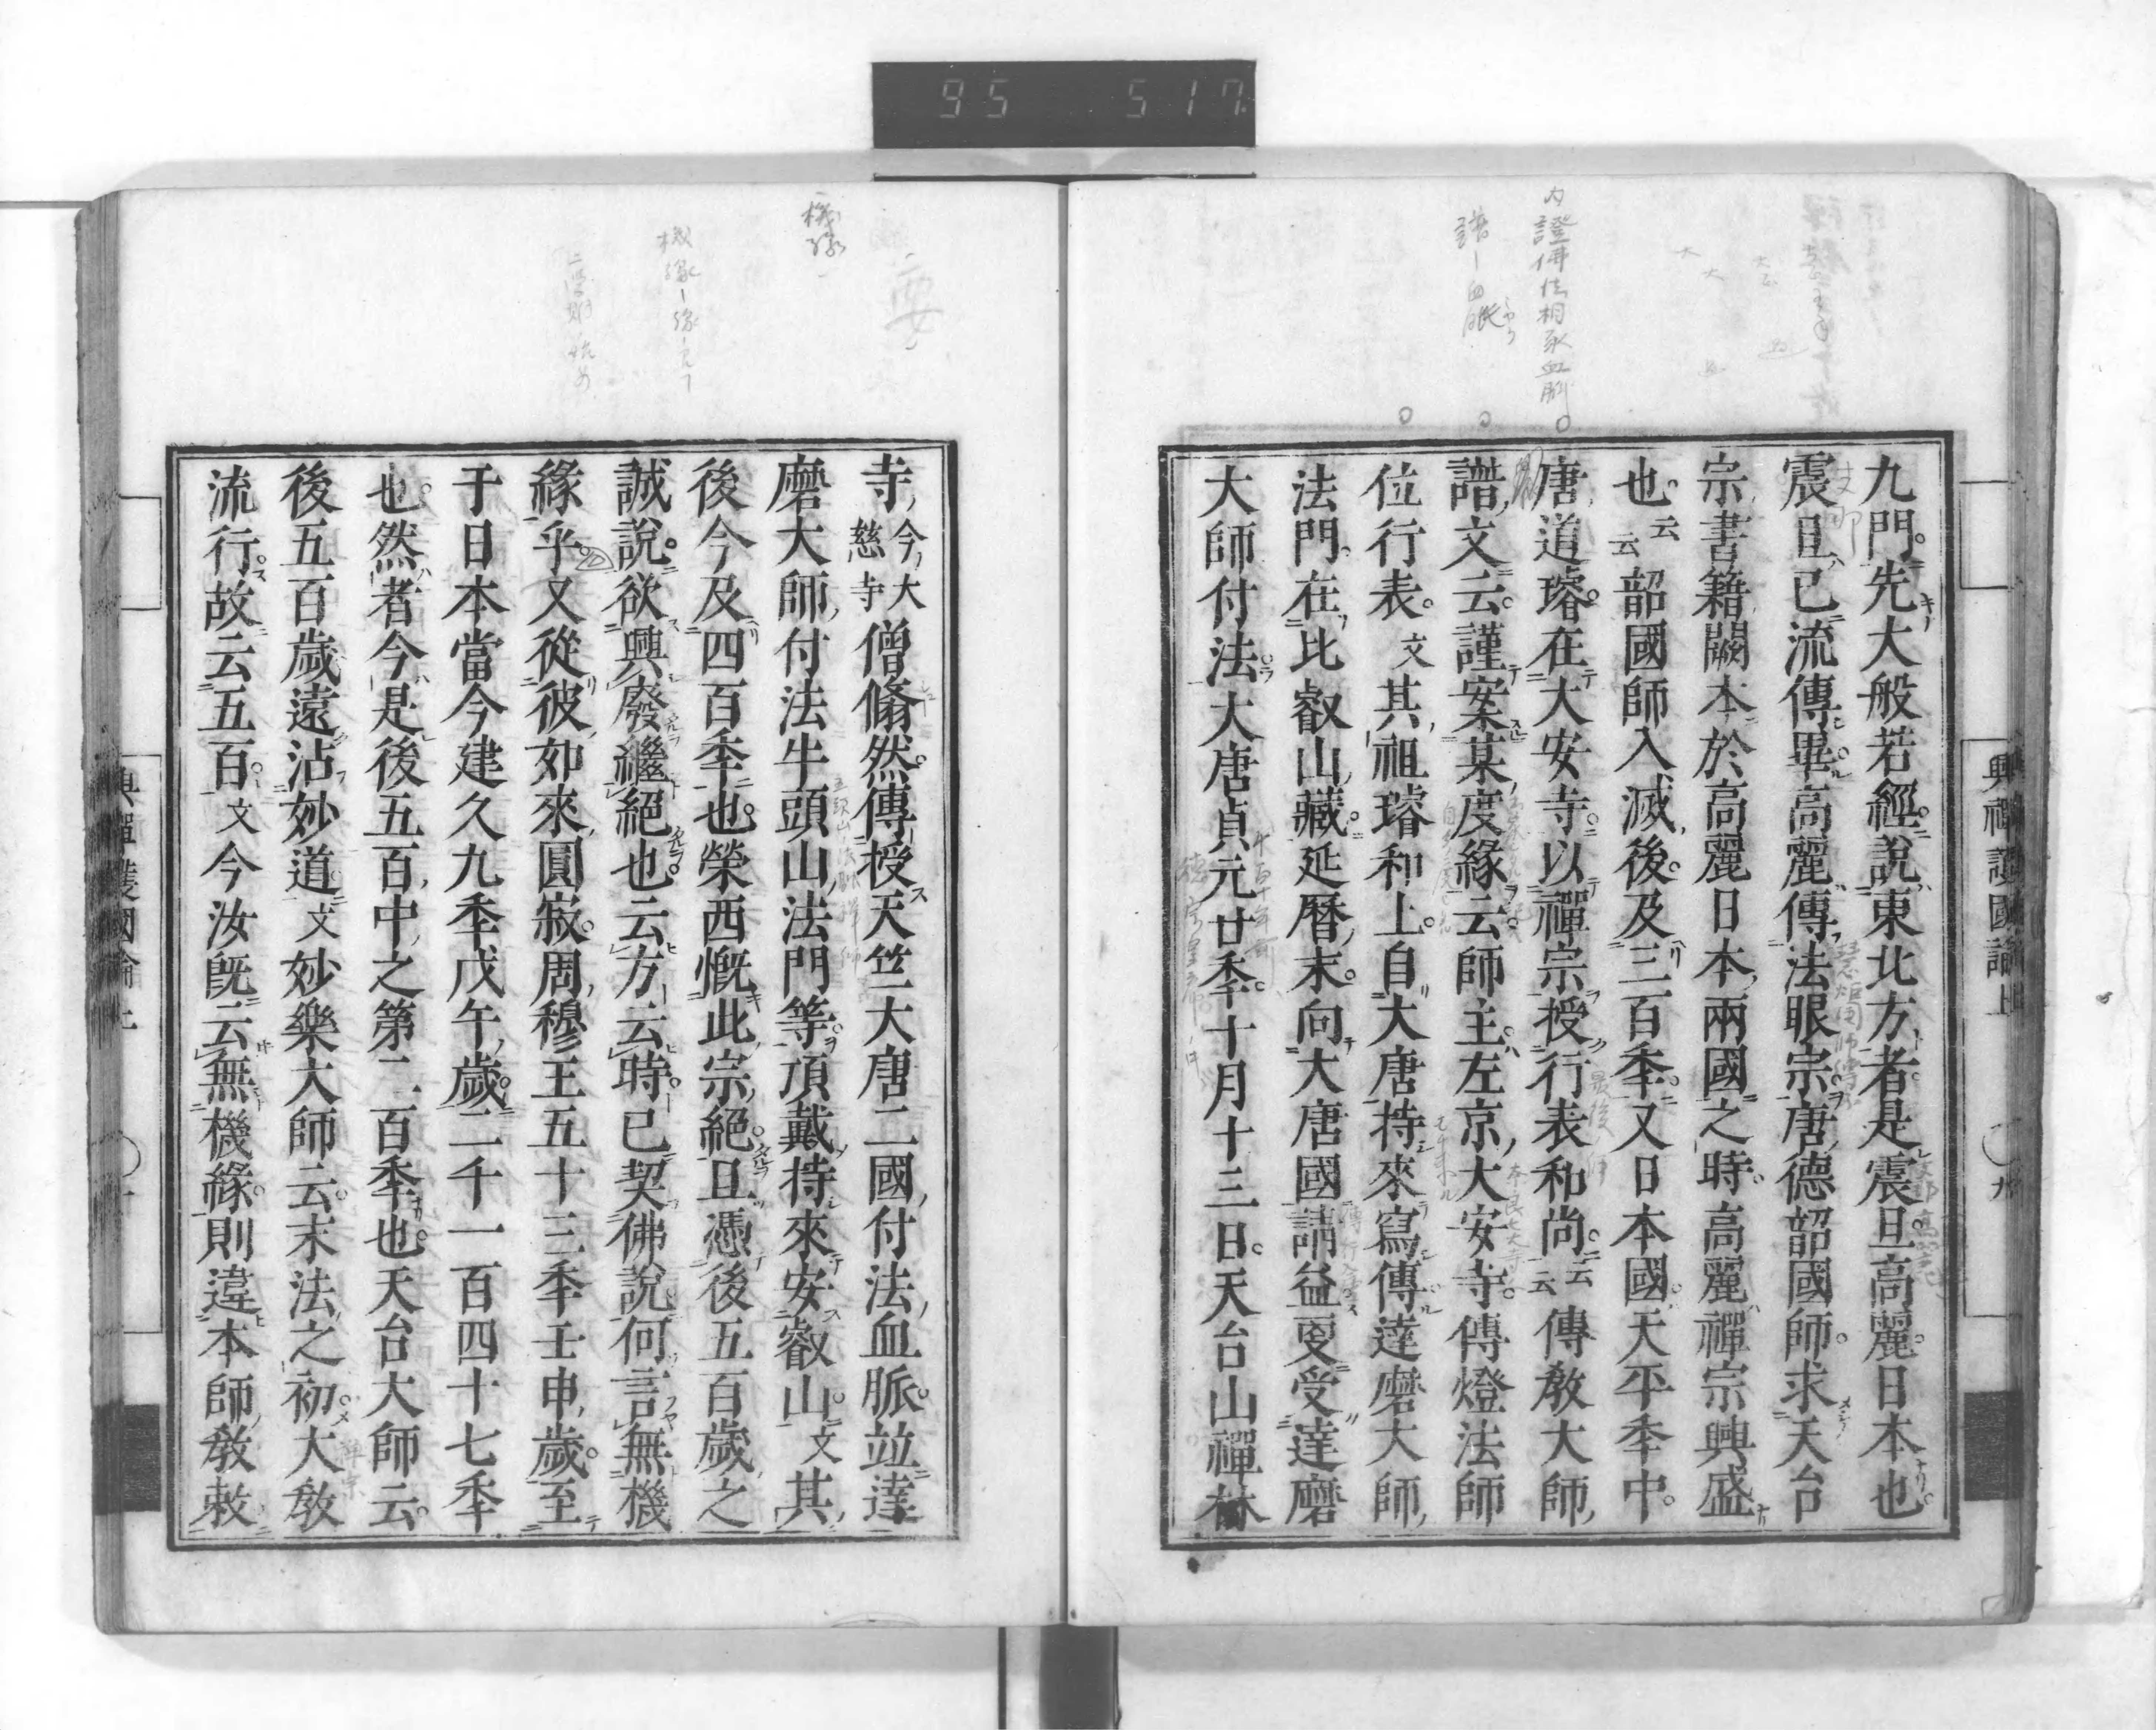 95 517
內證佛法相承血脈
譜
九門先大般若經說東北方者是震旦高麗日本也
震旦已流傳畢高麗傳法眼宗唐德韶國師求天台
宗書籍闕本於高麗日本兩國之時高麗禪宗興盛
也云云韶國師入滅後及三百季又日本國天平季中
唐道璿在大安寺以禪宗授行表和尚云云傳敎大師
譜文云謹案某度緣云師主左京大安寺傳燈法師
位行表文其祖璿和上自大唐持來寫傳達磨大師
法門在比叡山藏延曆末向大唐國請益更受達磨
大師付法大唐貞元廿季十月十三日天台山禪林
興禪護國論上 九
要
機緣
機緣
寺今大慈寺僧翛然傳授天竺大唐二國付法血脈竝達
磨大師付法牛頭山法門等頂戴持來安叡山文其
後今及四百季也榮西慨此宗絕且憑後五百歲之
誠說欲興廢繼絕也云方云時已契佛說何言無機
緣乎又從彼如來圓寂周穆王五十三季壬申歲至
于日本當今建久九季戊午歲二千一百四十七季
也然者今是後五百中之第二百季也天台大師云
後五百歲遠沾妙道文妙樂大師云末法之初大敎
流行故云五百文今汝旣云無機緣則違本師敎敕
興禪護國論上 十